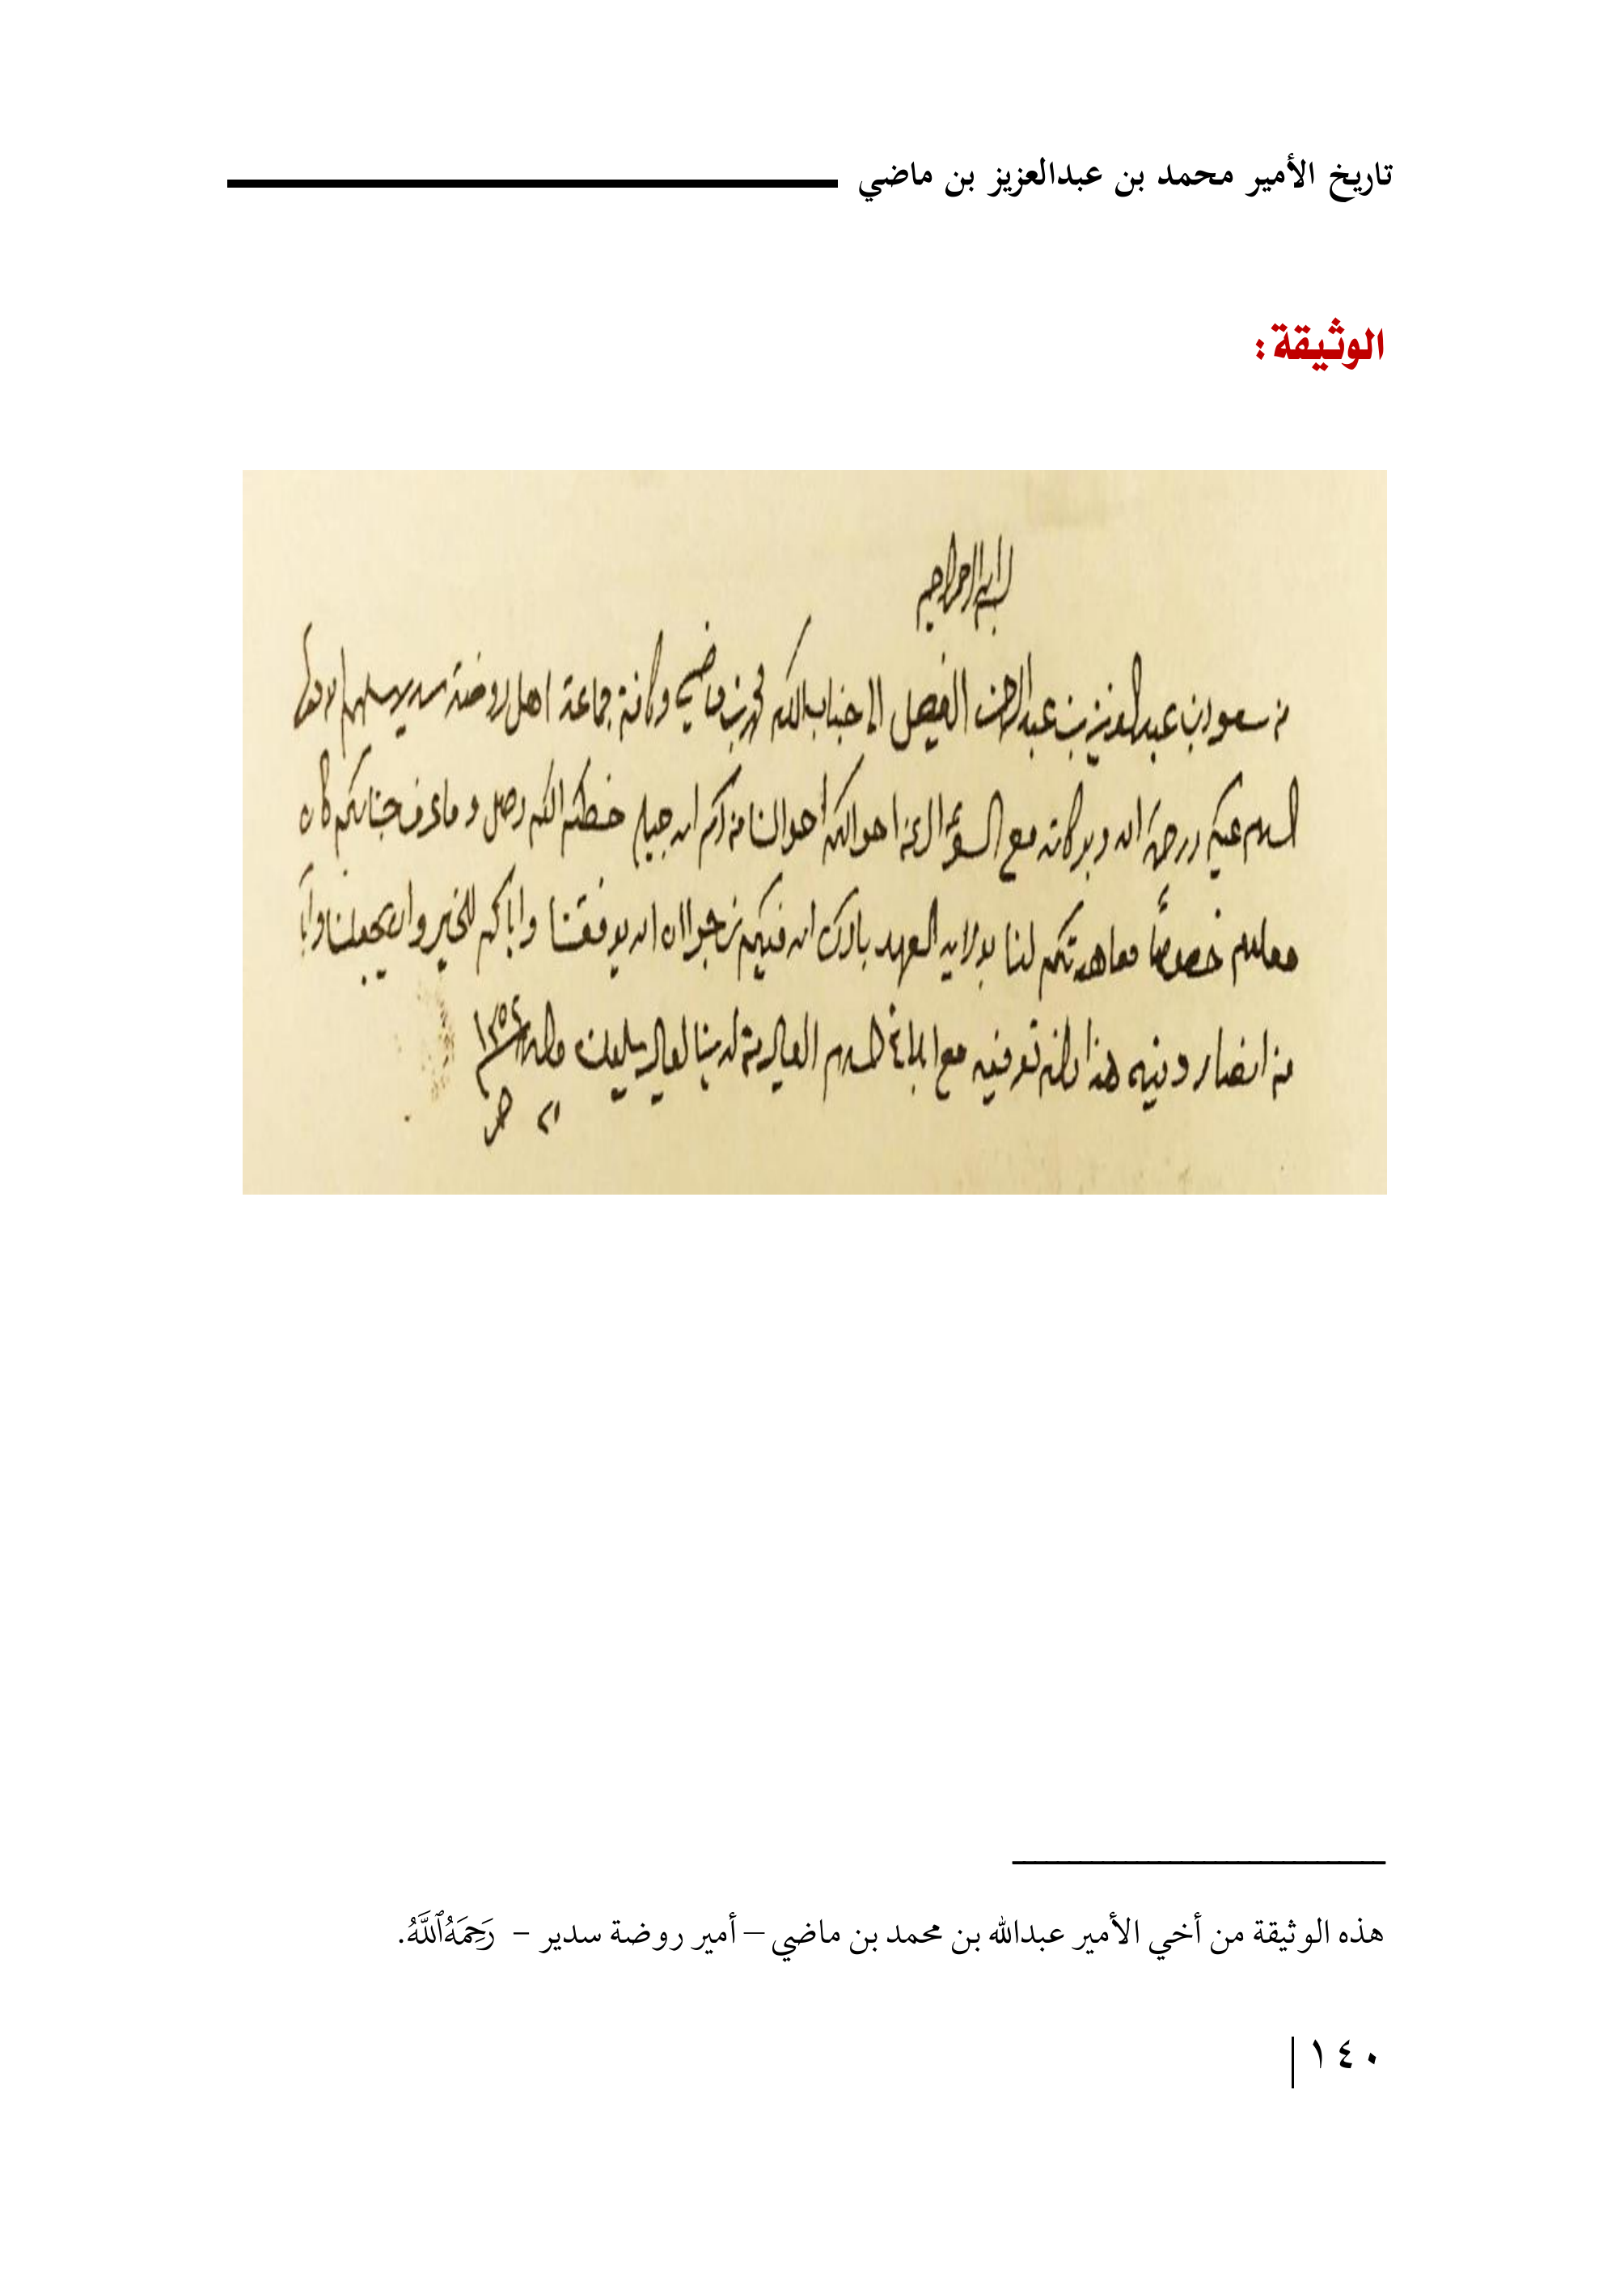 تاريخ الأمير محمد بن عبدالعزيز بن ماضي
الوثيقة:
بسم الله الرحمن الرحيم
من سعود بن عبدالعزيز بن عبدالرحمن الفيصل الى جناب المكرم محمد بن ماضي وكافة جماعة اهل روضة سدير سلمهم الله تعالى
السلام عليكم ورحمة الله وبركاته مع السؤال عن احوالكم احوالنا من كرم الله جميله خطكم المكرم وصل وما عرف جنابكم كان
معلوم خصوصاً معاهدتكم لنا بولاية العهد بارك الله فيكم نرجوا ان الله يوفقنا واياكم للخير وان يجعلنا واياكم
من انصار دينه هذا مالزم تعريفه مع ابلاغ السلام العيال ومن لدينا العيال يسلمون والسلام ١٣٥٢
هذه الوثيقة من أخي الأمير عبدالله بن محمد بن ماضي – أمير روضة سدير – رَحِمَهُ ٱللَّهُ.
١٤٠